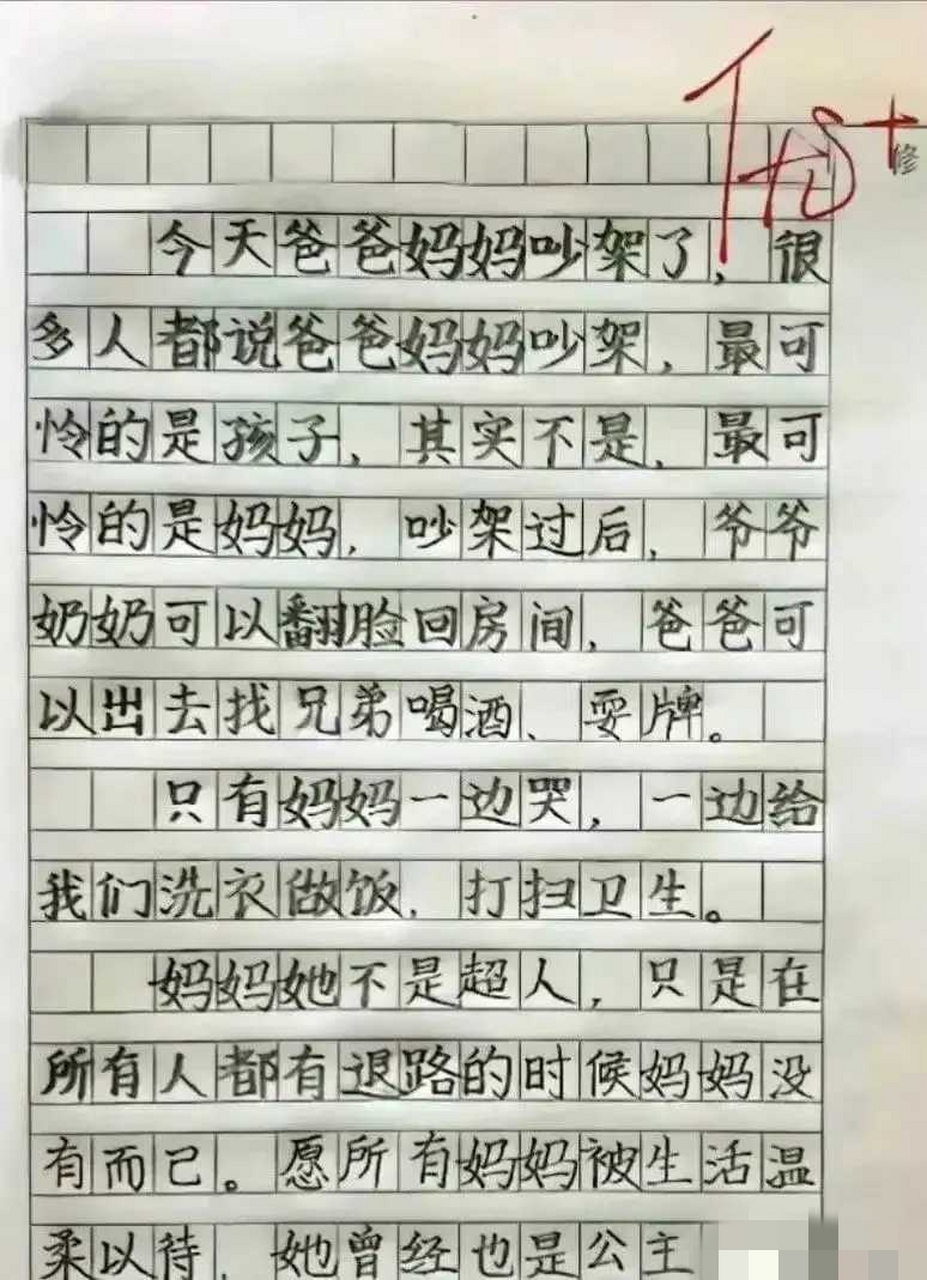 修
今天爸爸妈妈吵架了，很
多人都说爸爸妈妈吵架，最可
怜的是孩子，其实不是，最可
怜的是妈妈，吵架过后，爷爷
奶奶可以翻脸回房间，爸爸可
以出去找兄弟喝酒、耍牌。
只有妈妈一边哭，一边给
我们洗衣做饭，打扫卫生。
妈妈她不是超人，只是在
所有人都有退路的时候妈妈没
有而已。愿所有妈妈被生活温
柔以待，她曾经也是公主